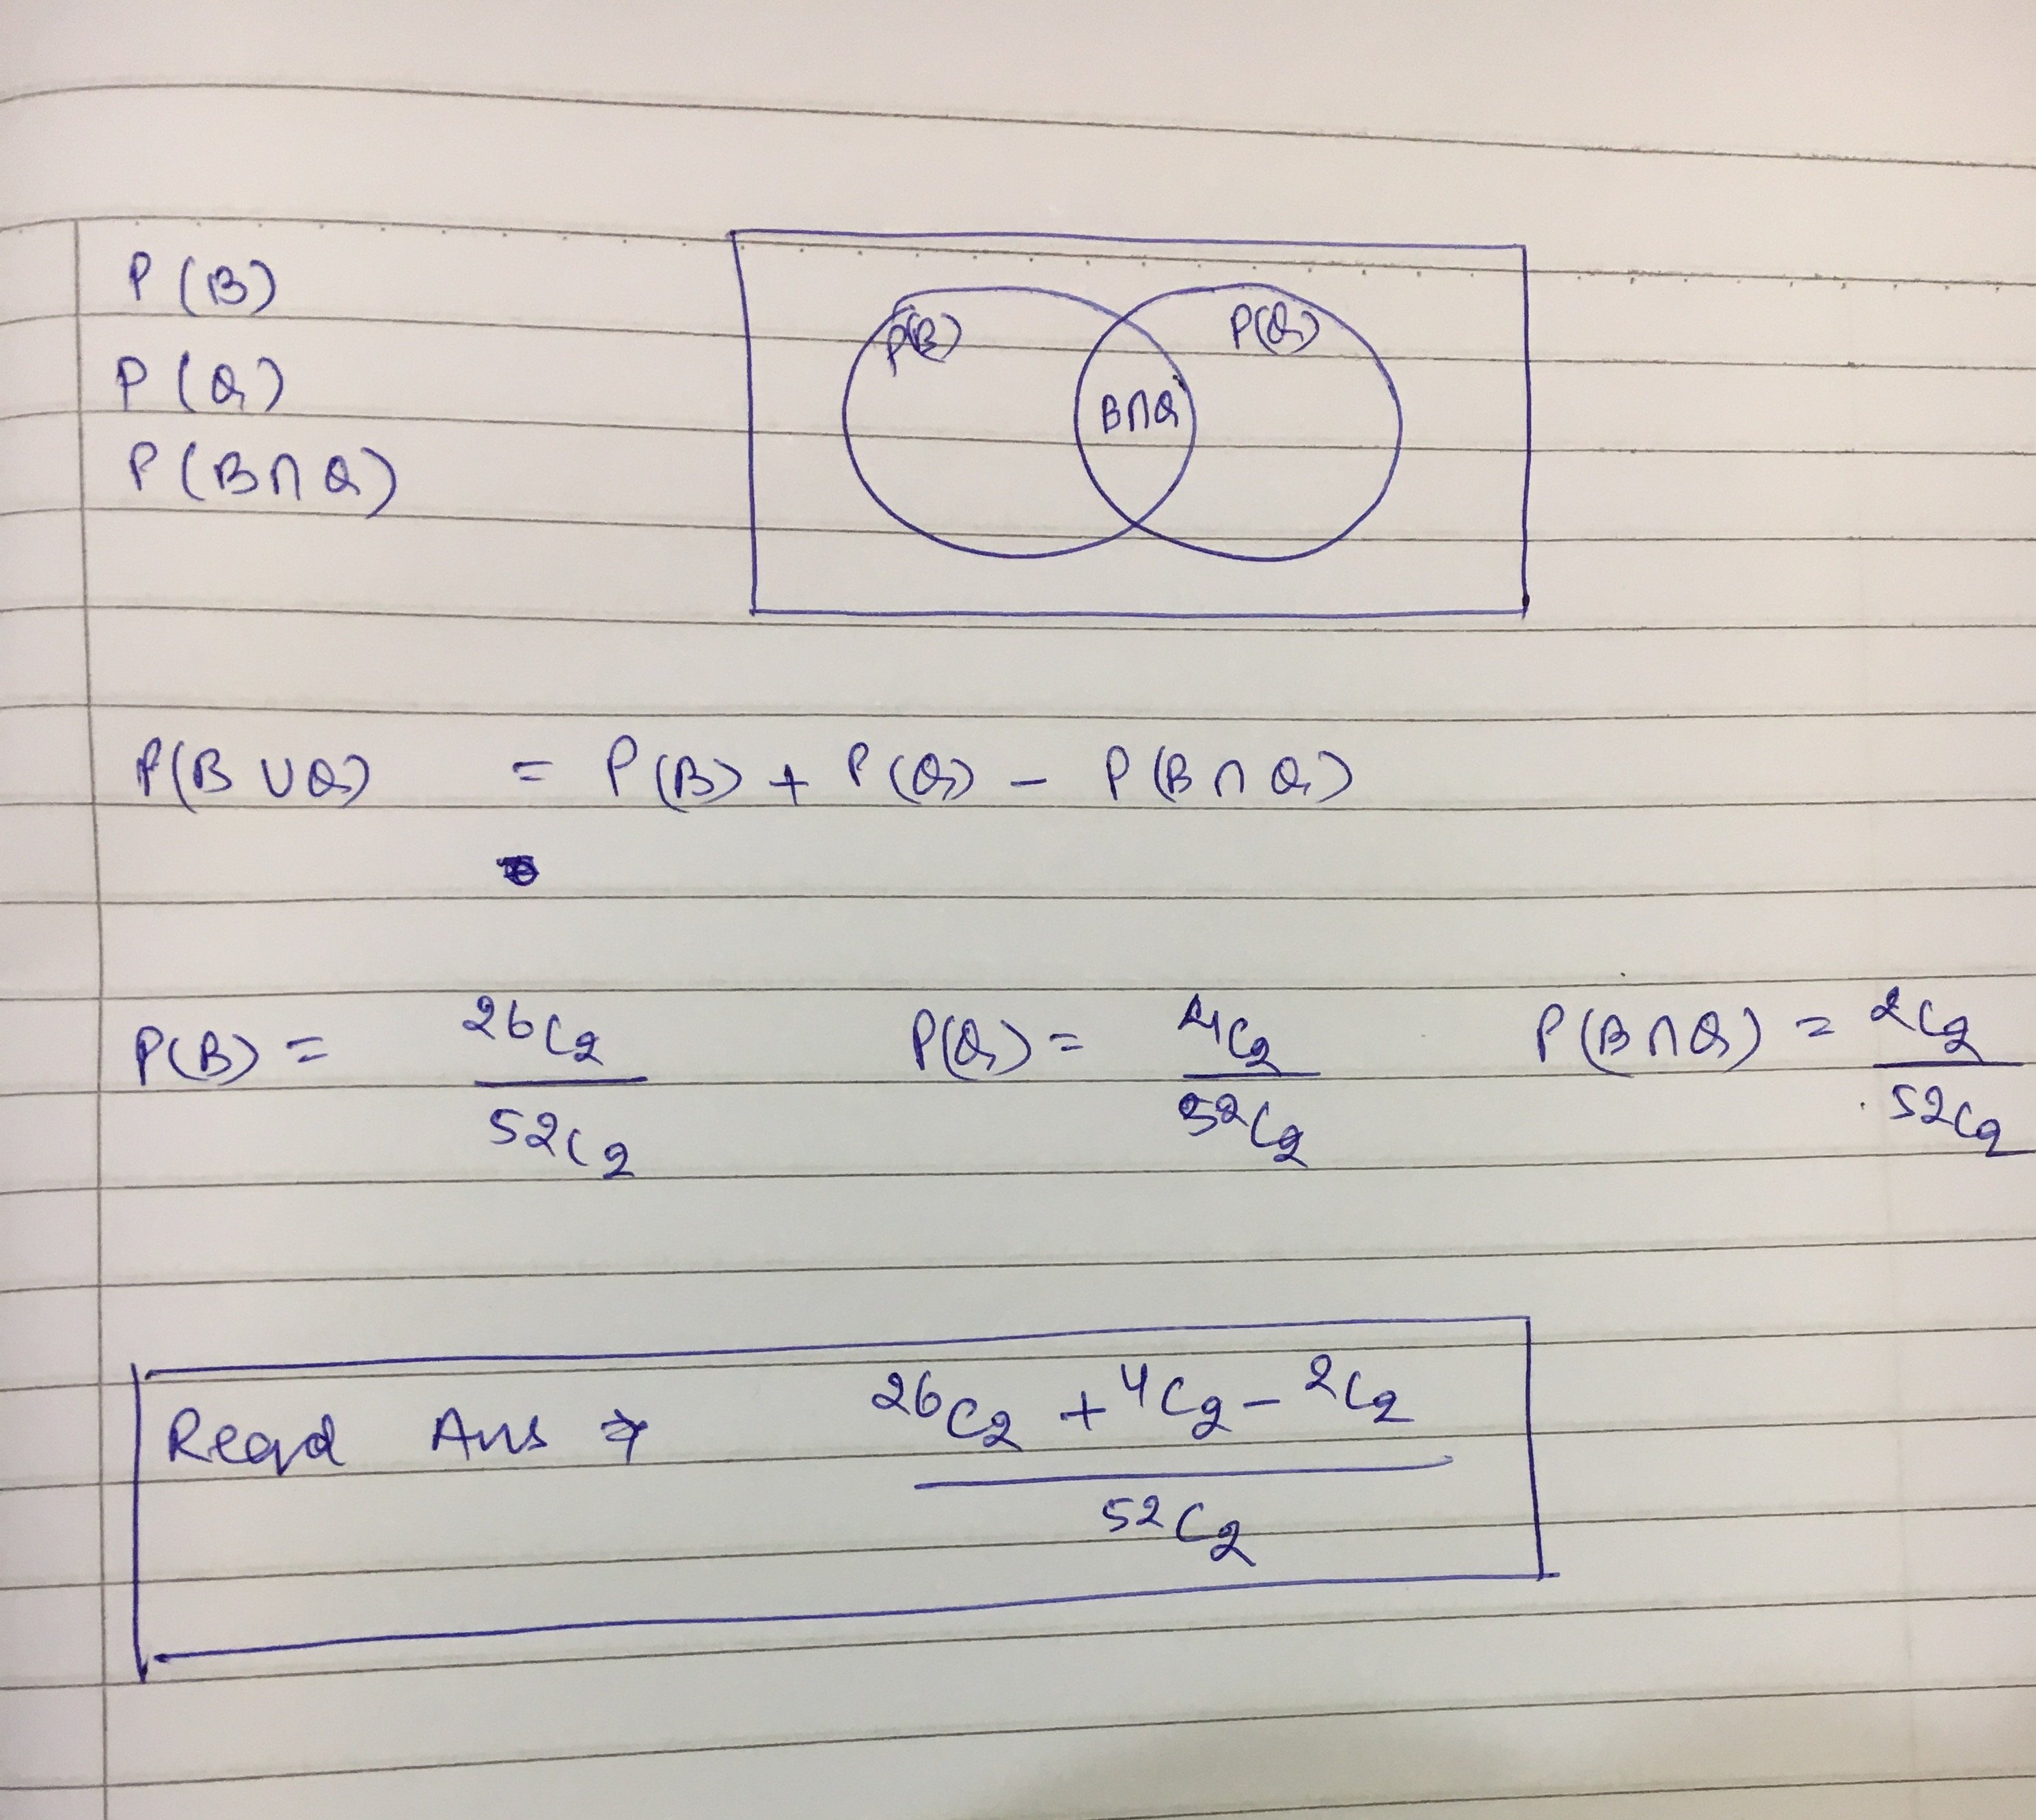 P(B)
P(Q)
P(B∩Q)
P(B) P(Q)
B∩Q
P(B∪Q) = P(B) + P(Q) - P(B∩Q)
P(B) = 26C2 / 52C2 P(Q) = 4C2 / 52C2 P(B∩Q) = 2C2 / 52C2
Reqd Ans ⇒ 26C2 + 4C2 - 2C2
52C2